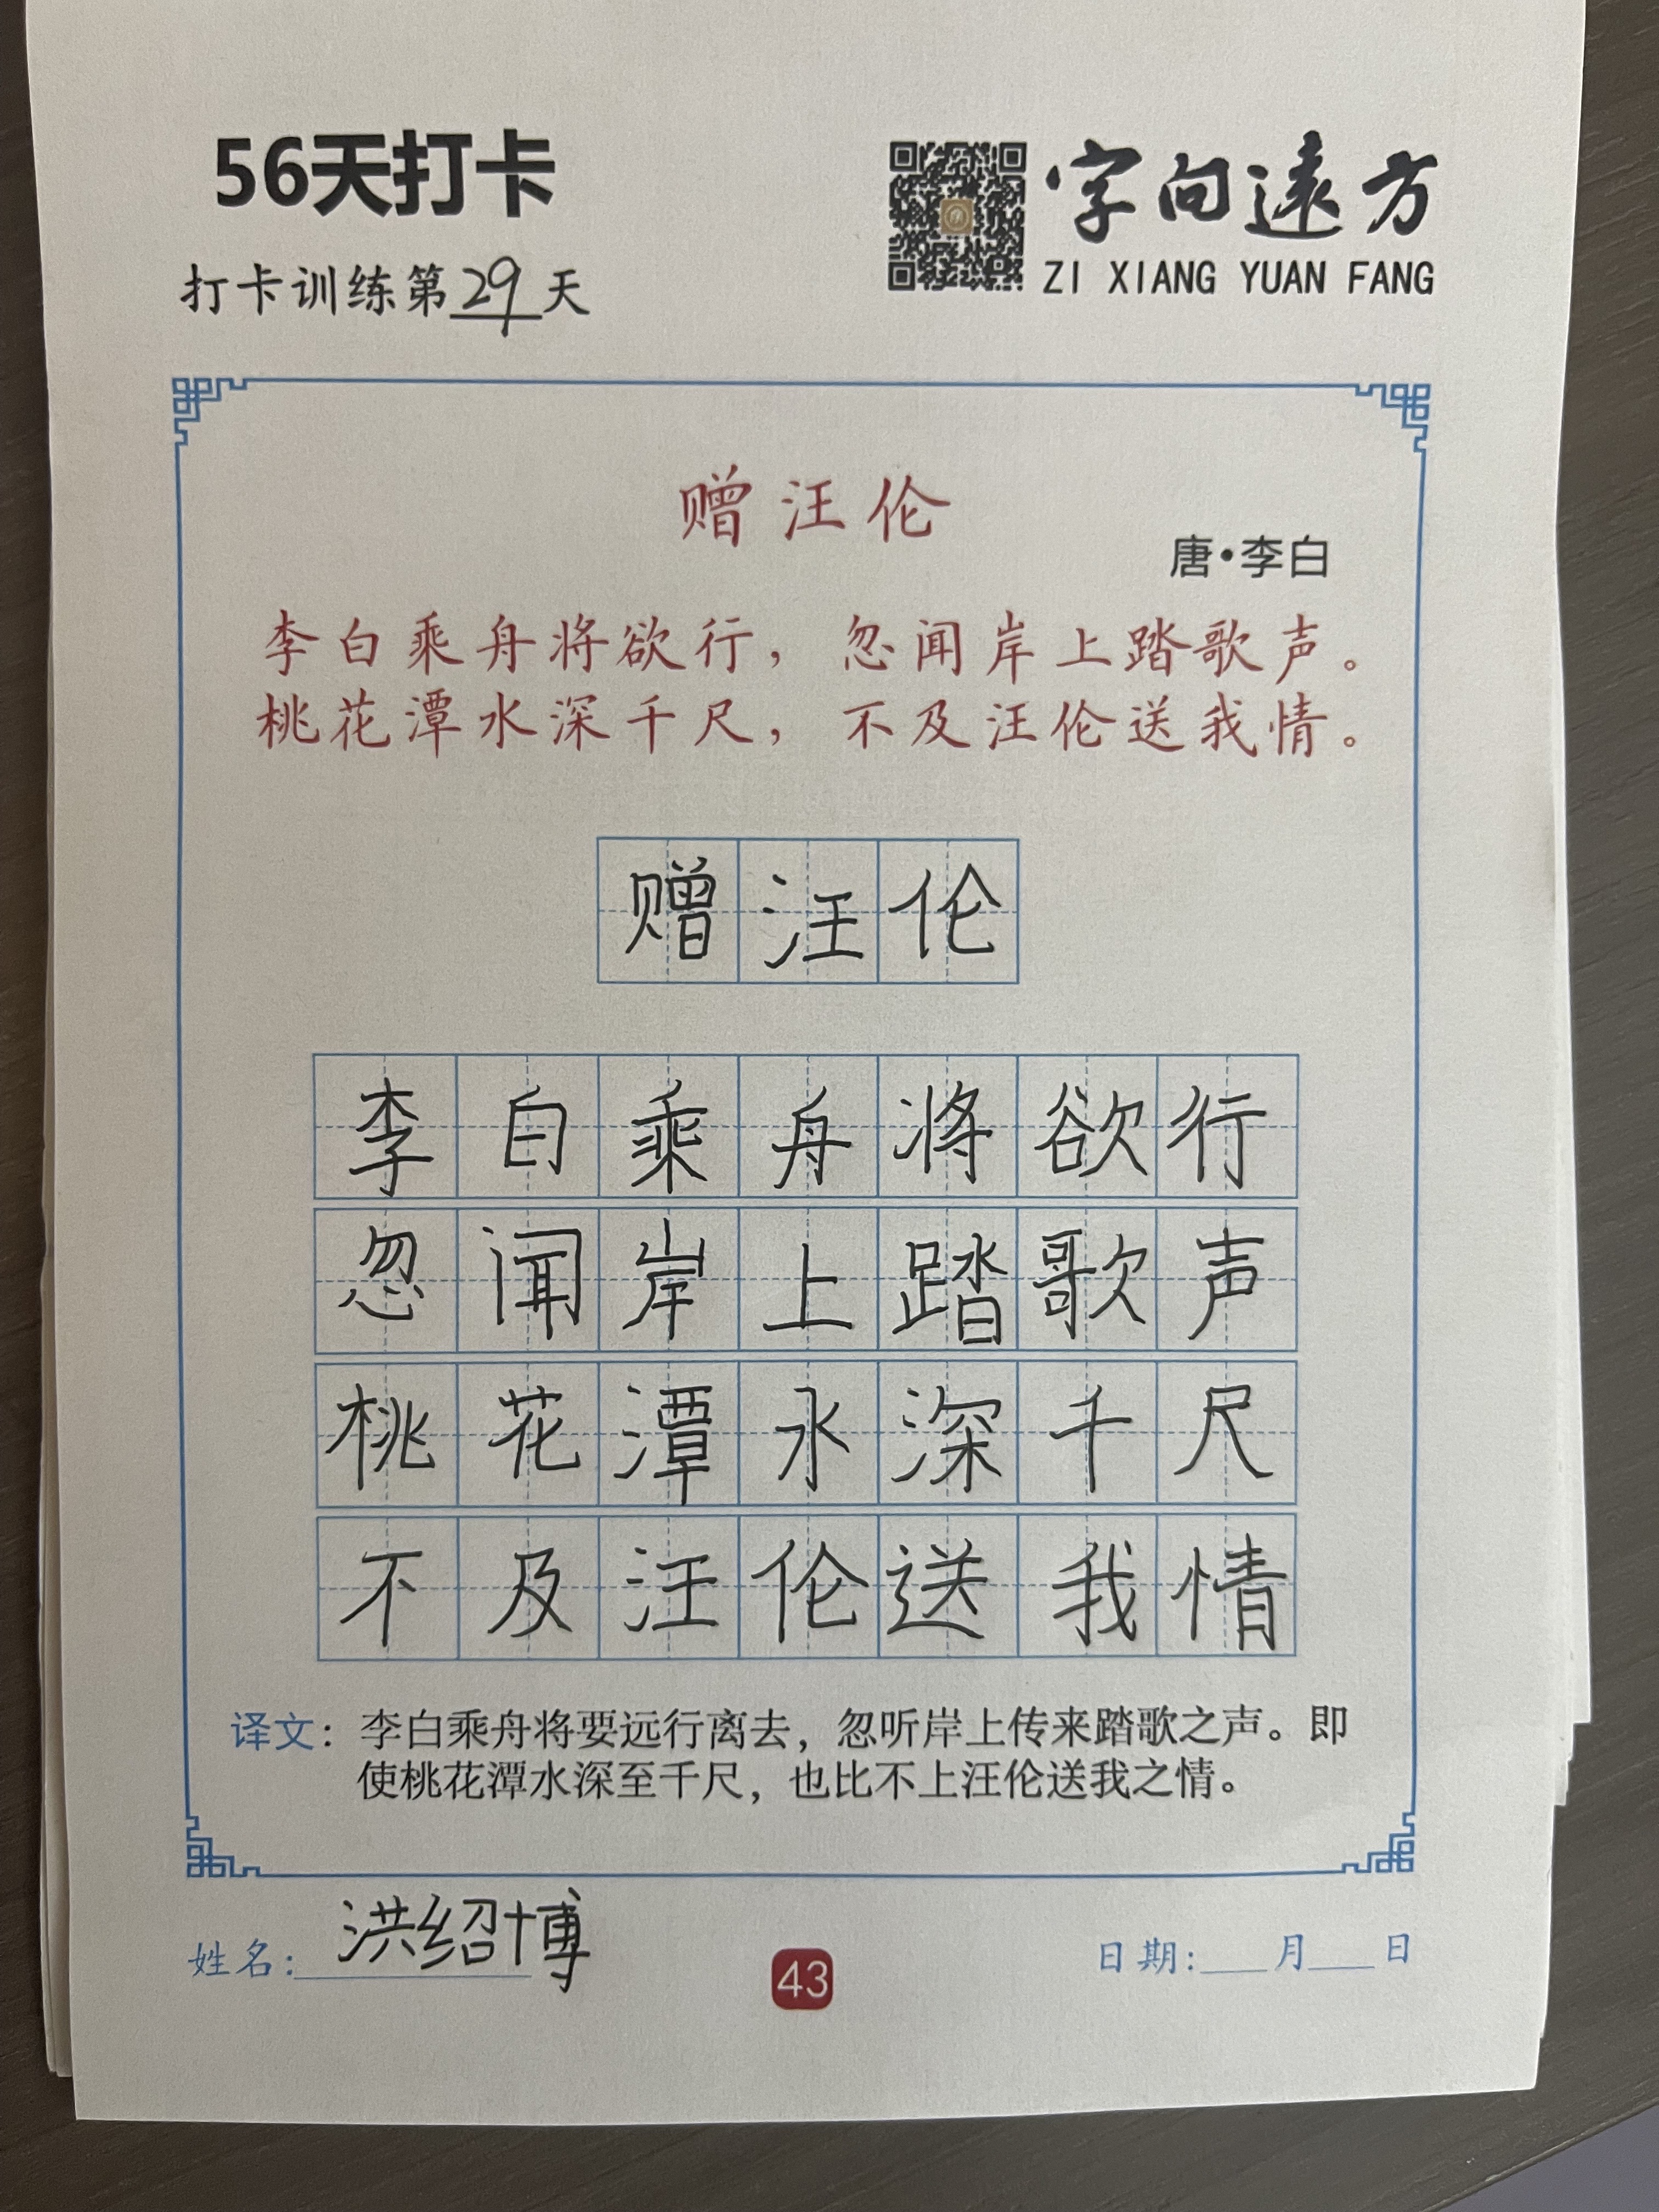 56天打卡
字向遠方
ZI XIANG YUAN FANG
打卡训练第29天
赠汪伦
唐·李白
李白乘舟将欲行，忽闻岸上踏歌声。
桃花潭水深千尺，不及汪伦送我情。
赠汪伦
李白乘舟将欲行
忽闻岸上踏歌声
桃花潭水深千尺
不及汪伦送我情
译文：李白乘舟将要远行离去，忽听岸上传来踏歌之声。即
使桃花潭水深至千尺，也比不上汪伦送我之情。
姓名：洪绍博
43
日期：___月___日